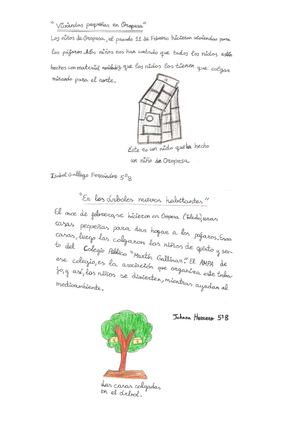 "Viviendas pequeñas en Oropesa"
Los niños de Oropesa, el pasado 11 de Febrero hicieron viviendas para
los pájaros. Los niños nos han contado que todos los nidos están
hechos con material reciclado y que los nidos los tienen que colgar
mirando para el norte.
Este es un nido que ha hecho
un niño de Oropesa
Isabel Gallego Fernández 5ºB
"En los árboles nuevos habitantes"
El once de febrero, se hicieron en Oropesa (Toledo), unas
casas pequeñas para dar hogar a los pájaros. Esas
casas, luego las colgaron los niños de quinto y sex-
to del Colegio Público "Martín Gallinar". El AMPA de
ese colegio, es la asociación que organiza este traba-
jo y así, los niños se divierten, mientras ayudan al
medioambiente.
Juhana Herrero 5ºB
Las casas colgadas
en el árbol.